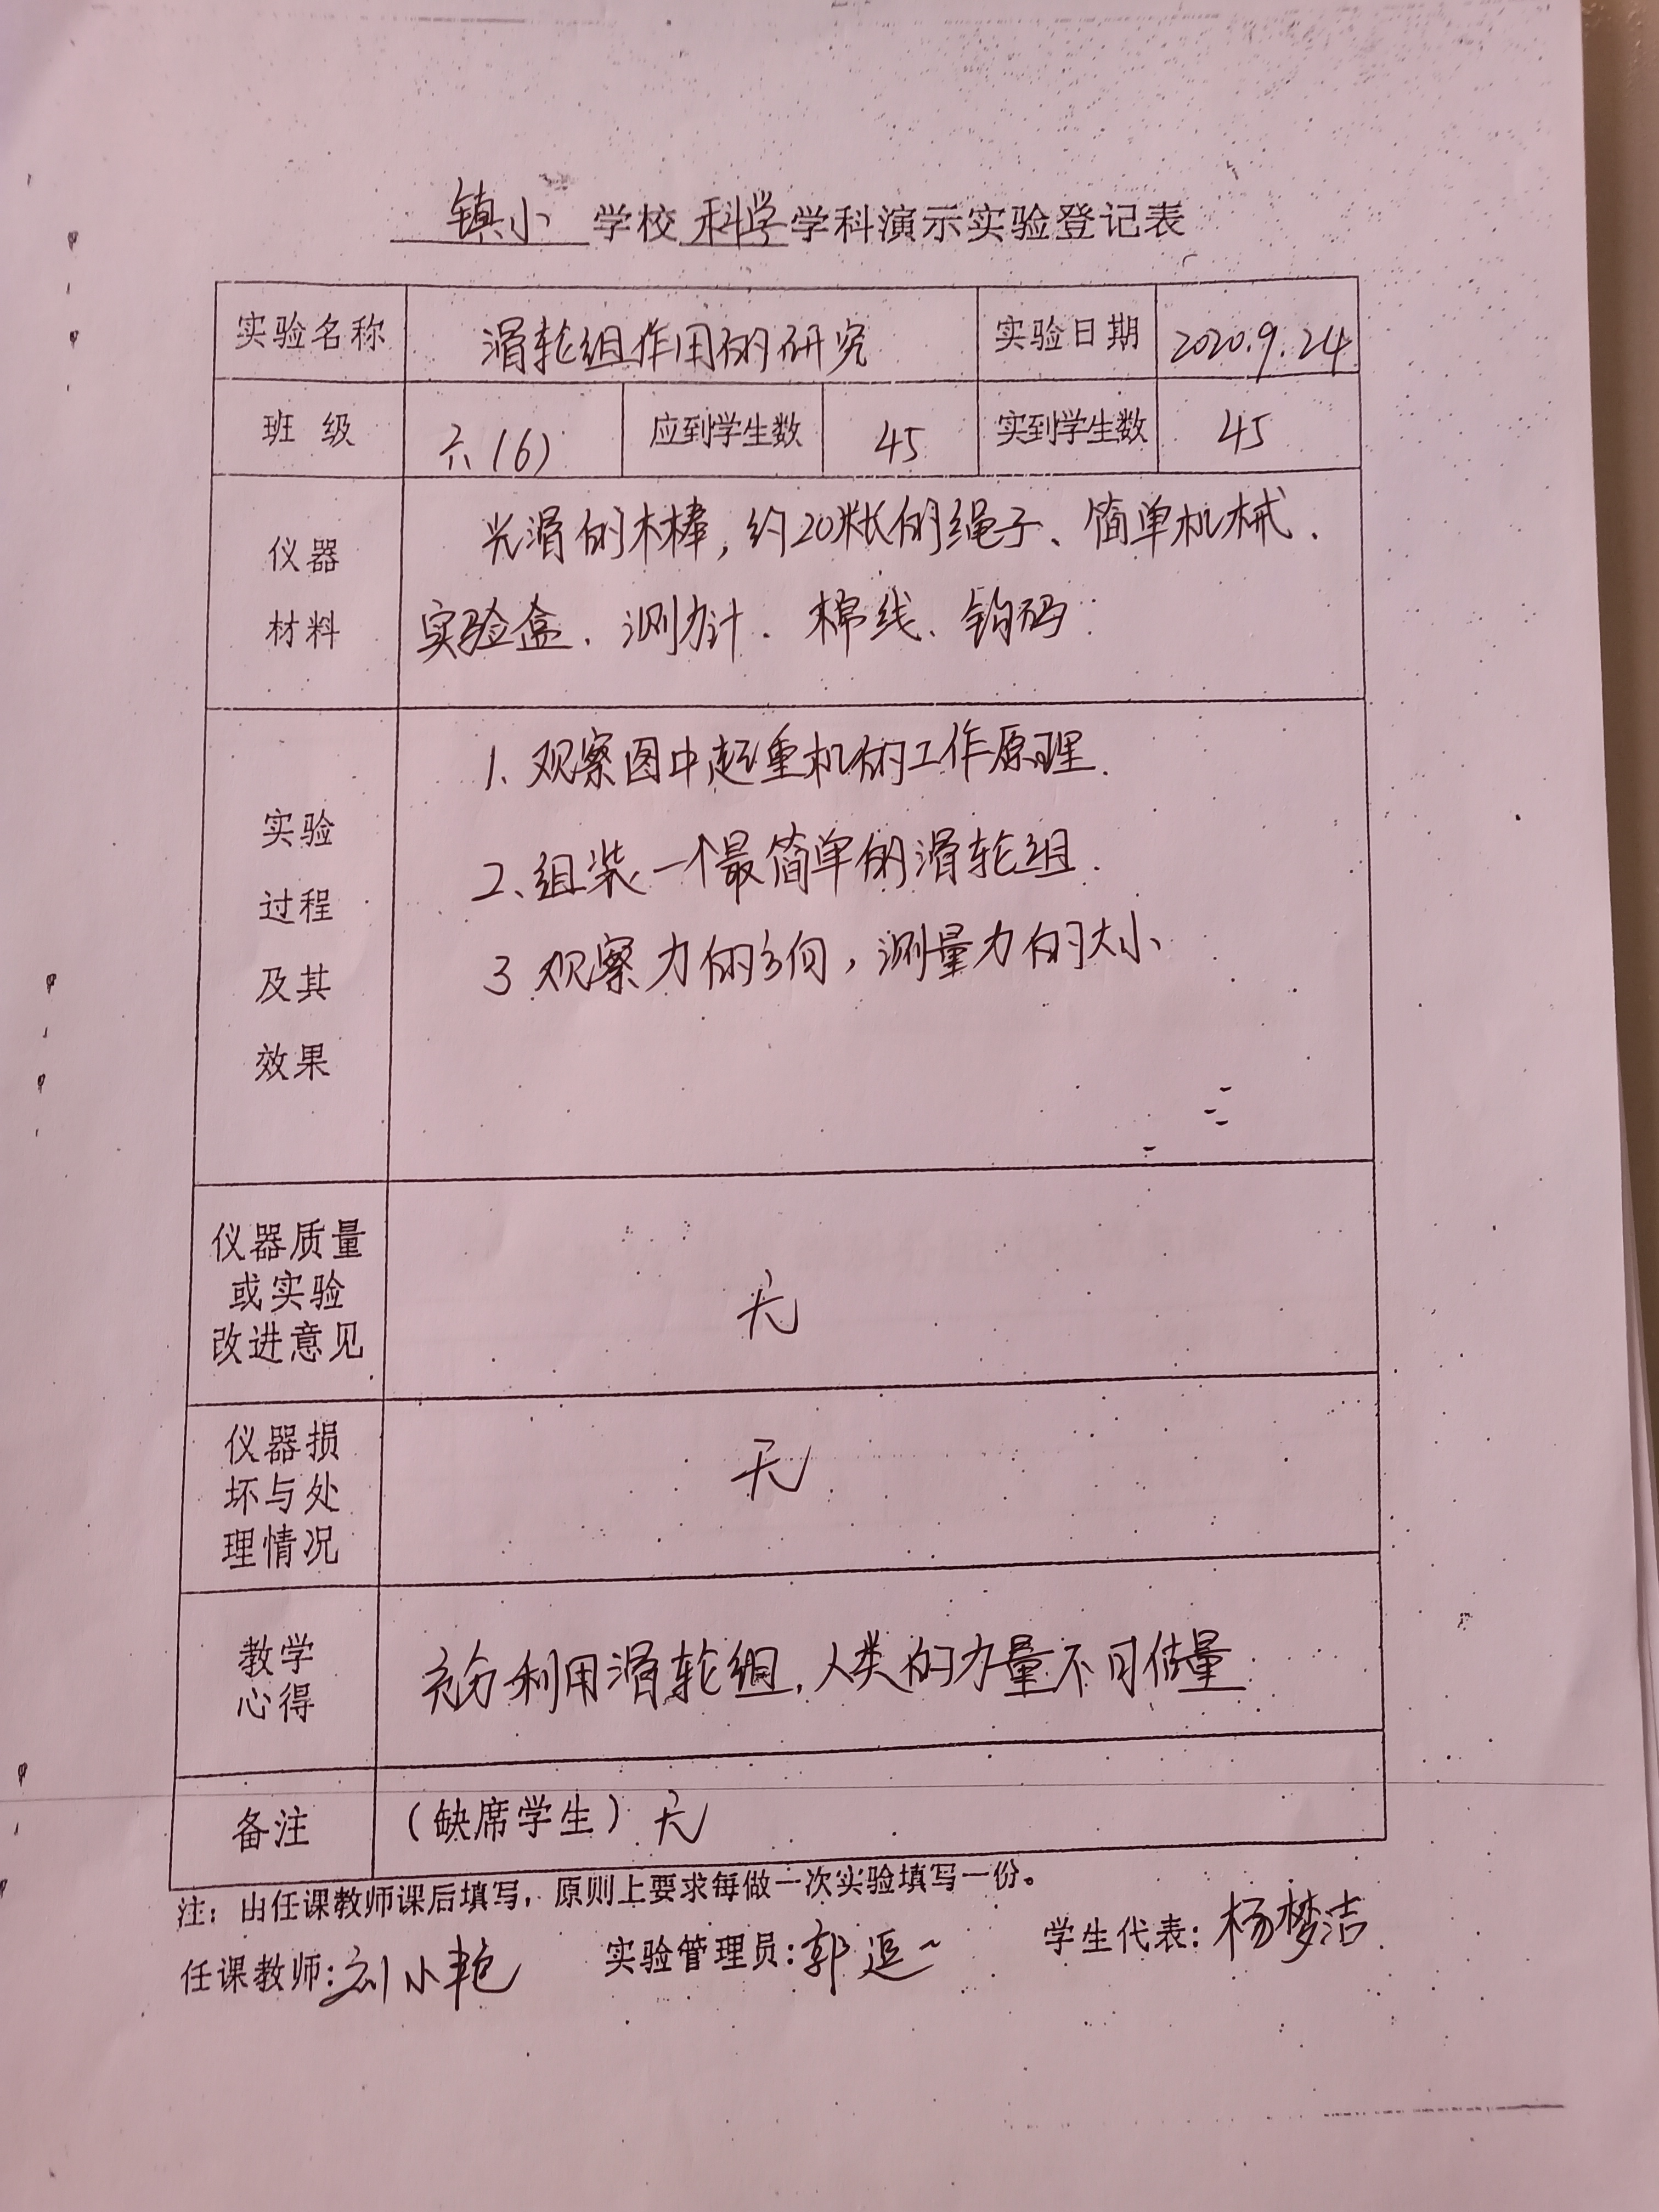 镇小 学校 科学 学科演示实验登记表
实验名称 滑轮组作用的研究 实验日期 2020.9.24
班 级 六(6) 应到学生数 45 实到学生数 45
仪器
材料
光滑的木棒,约20米长的绳子、简单机械.
实验盒、测力计、棉线、钩码.
实验
过程
及其
效果
1、观察图中起重机的工作原理.
2、组装一个最简单的滑轮组.
3 观察力的方向,测量力的大小
仪器质量
或实验
改进意见
无
仪器损
坏与处
理情况
无
教学
心得
充分利用滑轮组,人类的力量不可估量
备注 (缺席学生)无
注:由任课教师课后填写,原则上要求每做一次实验填写一份。
任课教师:刘小艳 实验管理员:郭 学生代表:杨梦洁